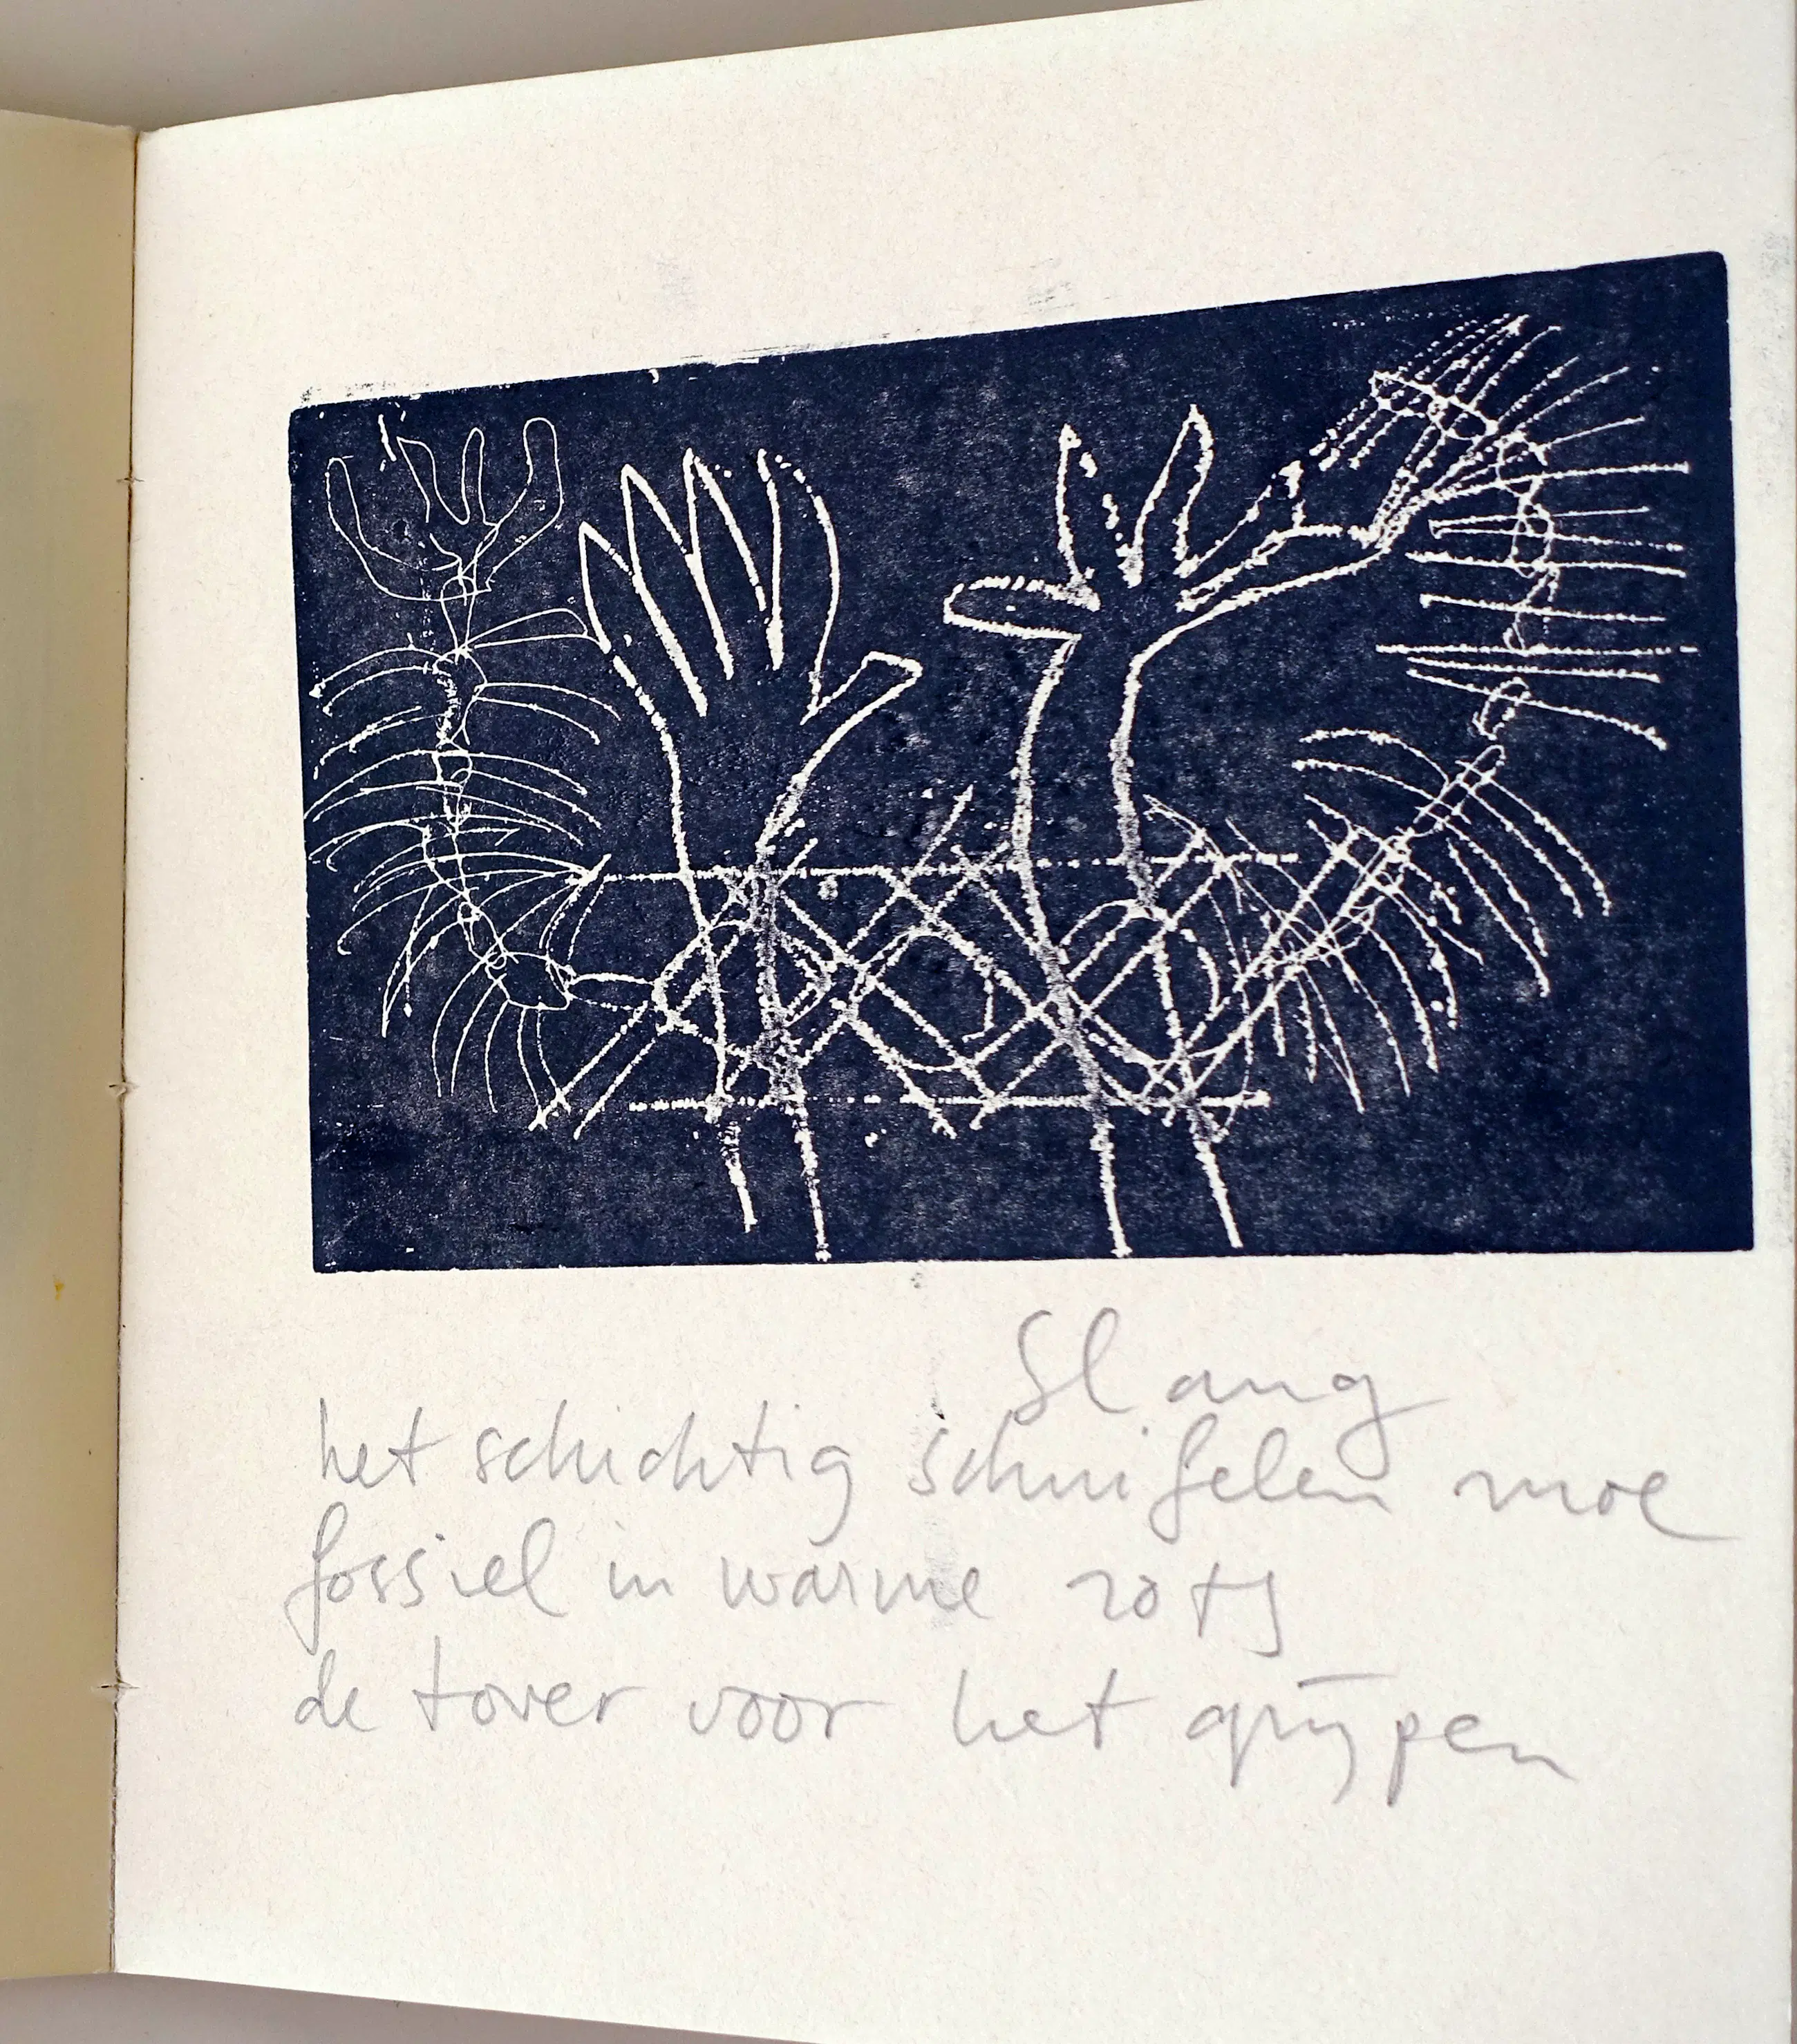 Slang
het schichtig schuifelen moe
fossiel in warme rots
de tover voor het grijpen